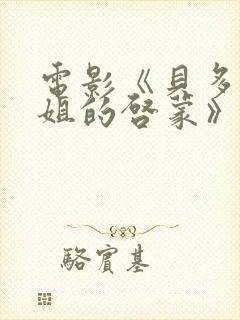 電影《貝多
姐的啓蒙》
駱賓基